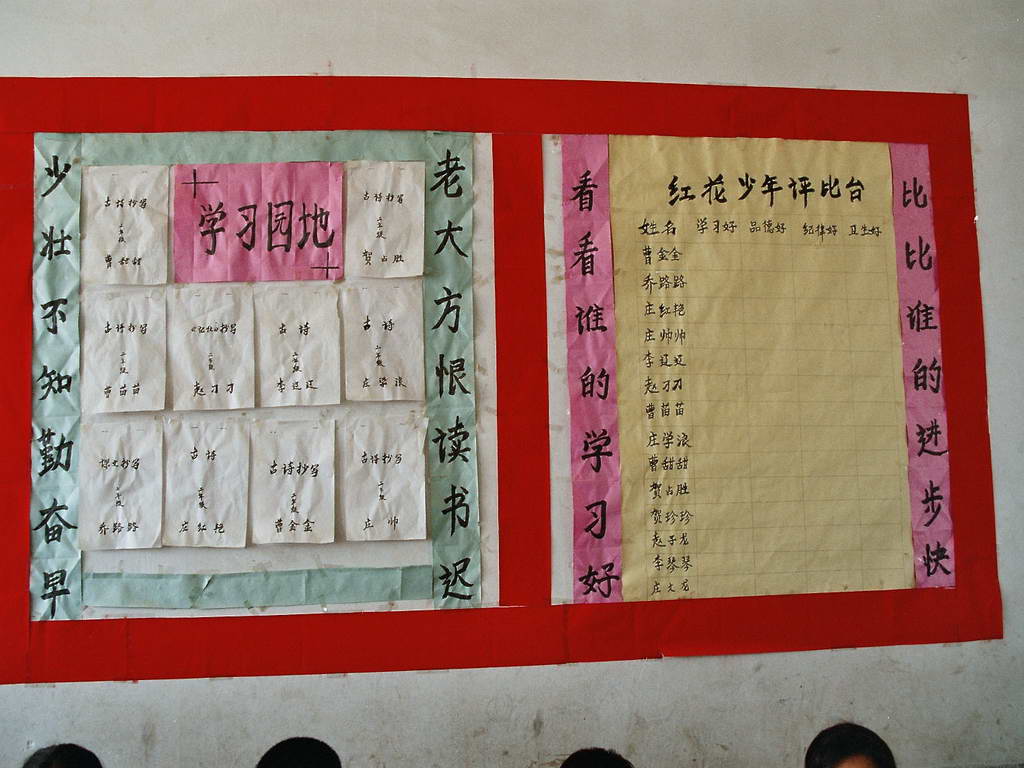 少壮不知勤奋早
老大方恨读书迟
学习园地
古诗抄写
二年级
曹甜甜
古诗抄写
二年级
贺占胜
古诗抄写
二年级
曹苗苗
抄写
二年级
赵刁刁
古诗
二年级
李辽辽
古诗
二年级
庄学浪
课文抄写
二年级
乔路路
古诗
二年级
庄红艳
古诗抄写
二年级
曹金金
古诗抄写
二年级
庄帅
看看谁的学习好
比比谁的进步快
红花少年评比台
姓名 学习好 品德好 纪律好 卫生好
曹金金
乔路路
庄红艳
庄帅帅
李辽辽
赵刁刁
曹苗苗
庄学浪
曹甜甜
贺占胜
贺珍珍
赵子龙
李琴琴
庄文龙